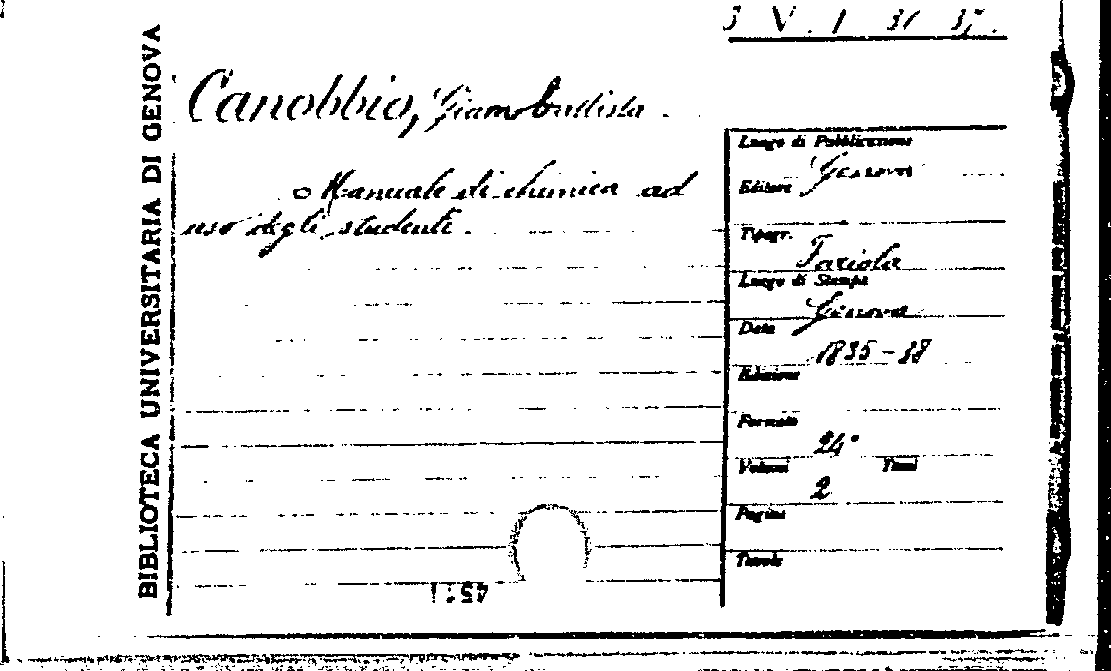 3 V. 1 31 37.
BIBLIOTECA UNIVERSITARIA DI GENOVA
Canobbio, Giambattista.
Manuale di chimica ad
uso degli studenti.
Luogo di Pubblicazione
Genova
Editore
Tipogr.
Faziola
Luogo di Stampa
Genova
Data
1835-38
Edizione
Formato
24°
Volumi Tomi
2
Pagine
Tavole